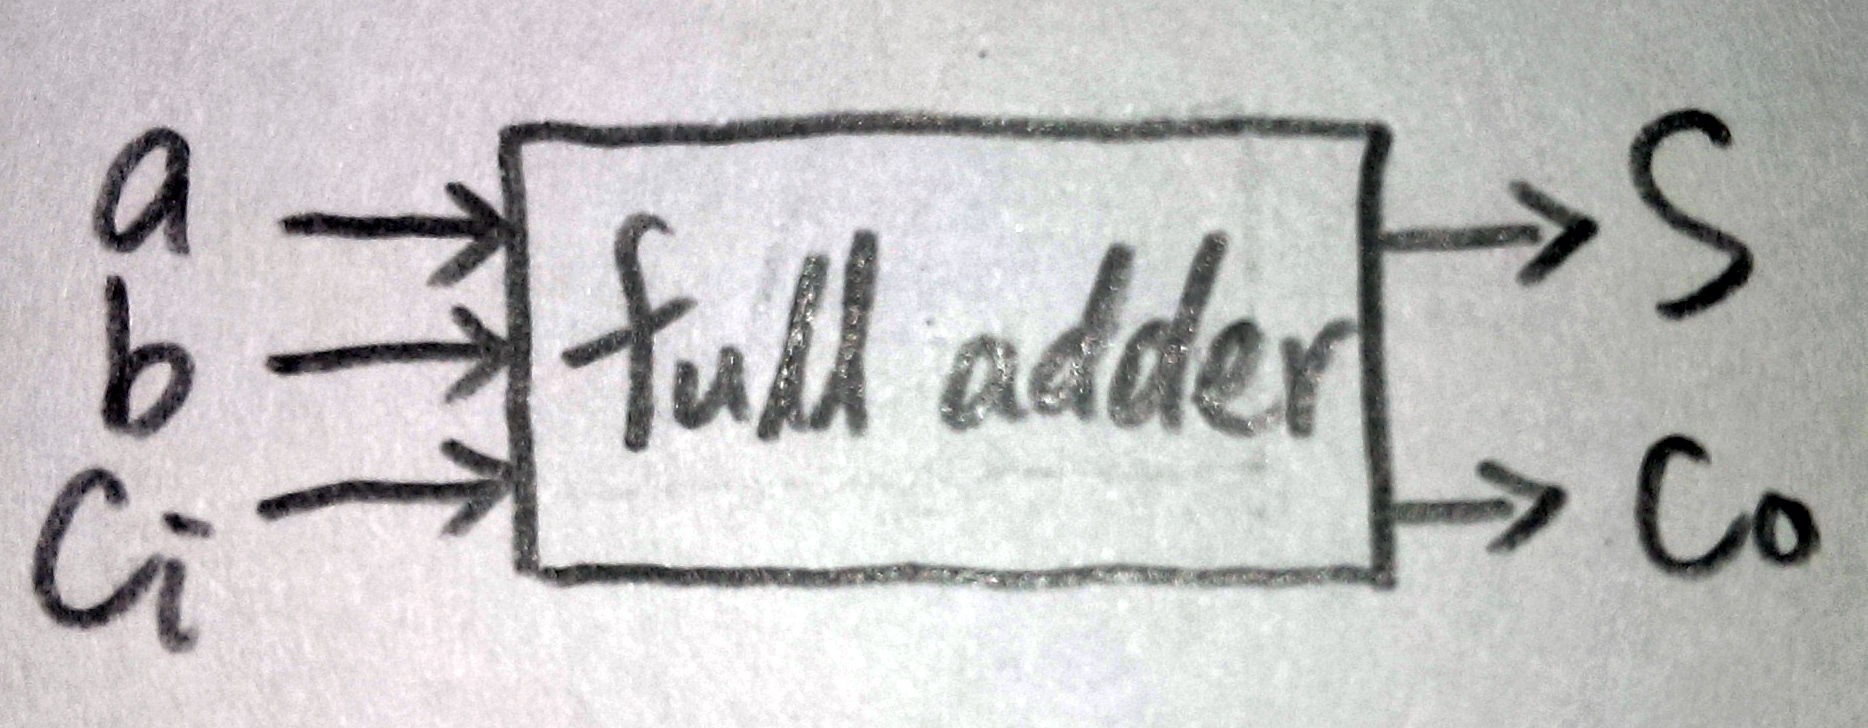 a
b
Ci
full adder
S
Co